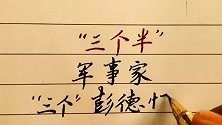 “三个半”
军事家
“三个”彭德